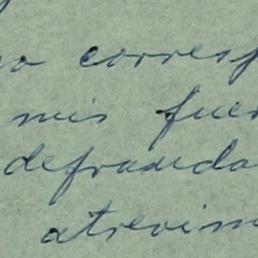 corresp
mis fuer
defrauda
atrevim